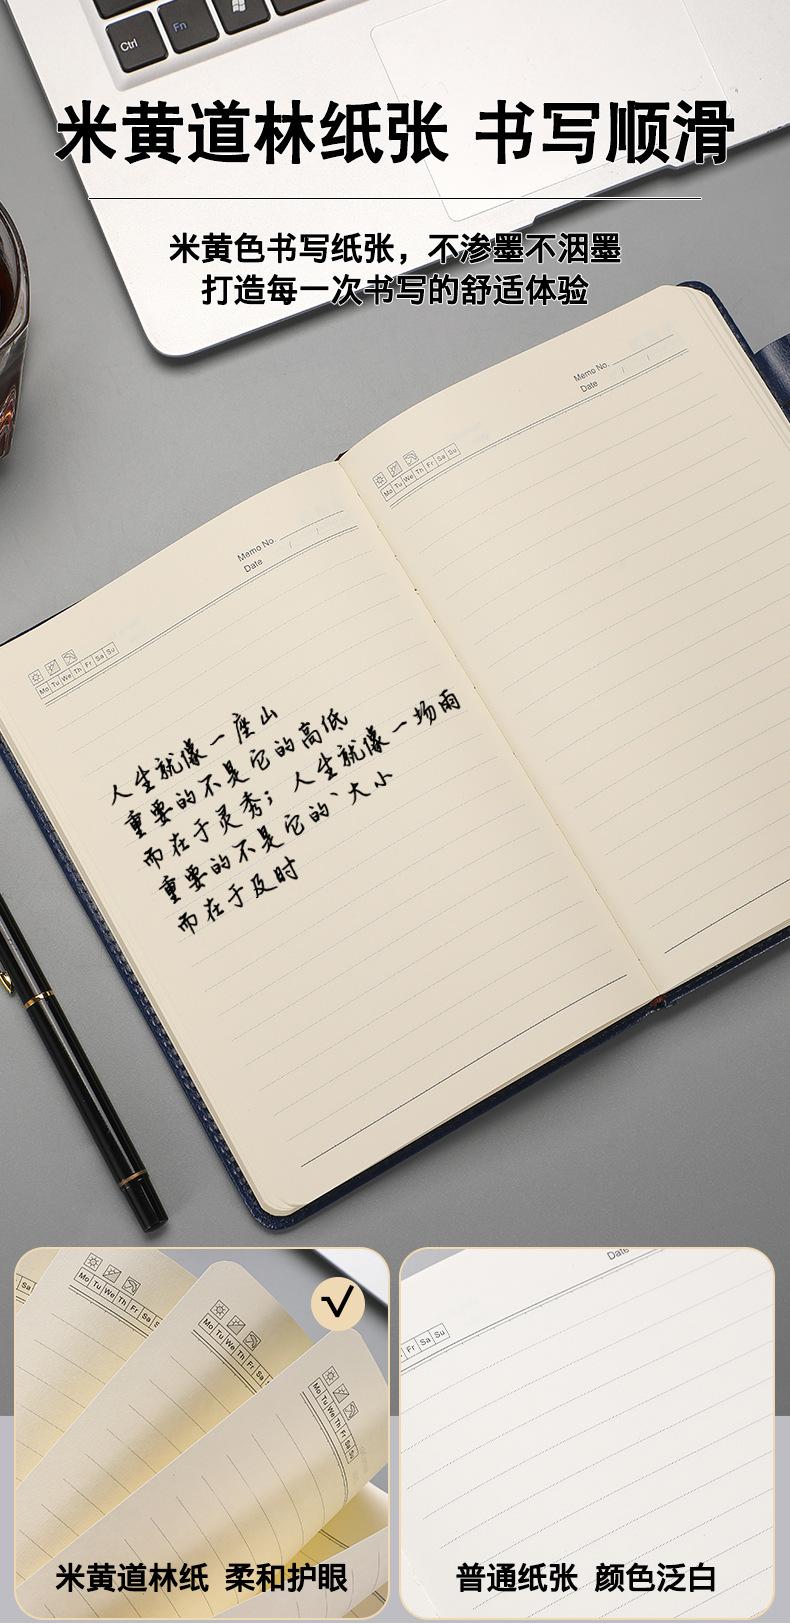 Ctrl
Fn
米黄道林纸张 书写顺滑
米黄色书写纸张，不渗墨不洇墨
打造每一次书写的舒适体验
Memo No.
Date / /
Mo Tu We Th Fr Sa Su
Memo No.
Date / /
Mo Tu We Th Fr Sa Su
人生就像一座山
重要的不是它的高低
而在于灵秀；人生就像一场雨
重要的不是它的、大小
而在于及时
Sa
Mo Tu We Th Fr S
Mo Tu We Th Fr Sa
Mo Tu We Th Fr Sa Su
米黄道林纸 柔和护眼
Date
Fr Sa Su
普通纸张 颜色泛白